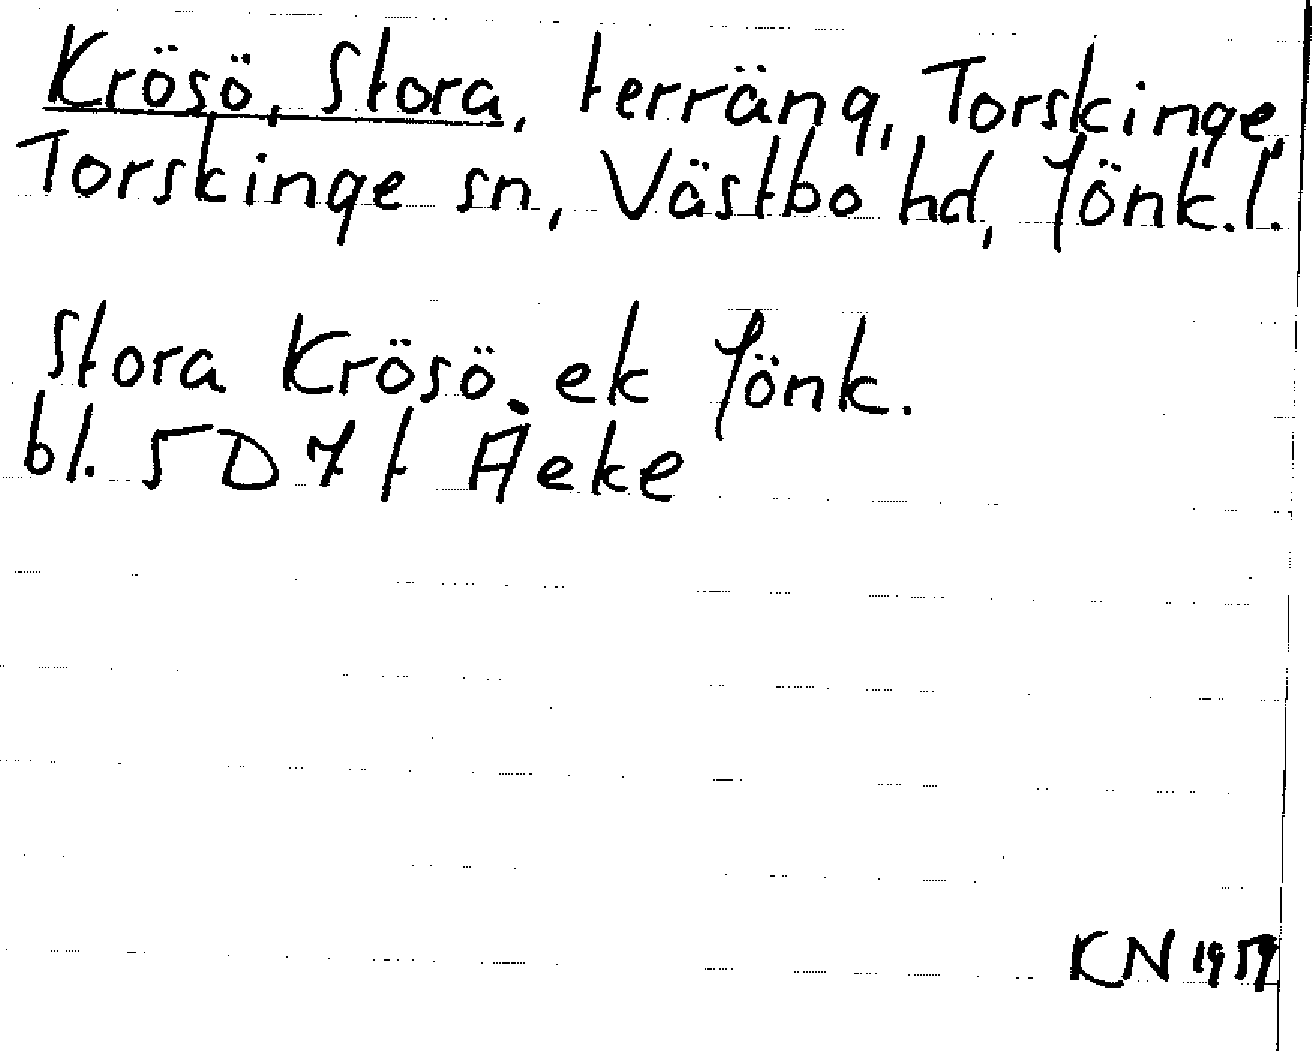 Krösö, Stora, terräng, Torskinge,
Torskinge sn, Västbo hd, Jönk.l.
Stora Krösö. ek Jönk.
bl. 5D 7f Åeke
KN